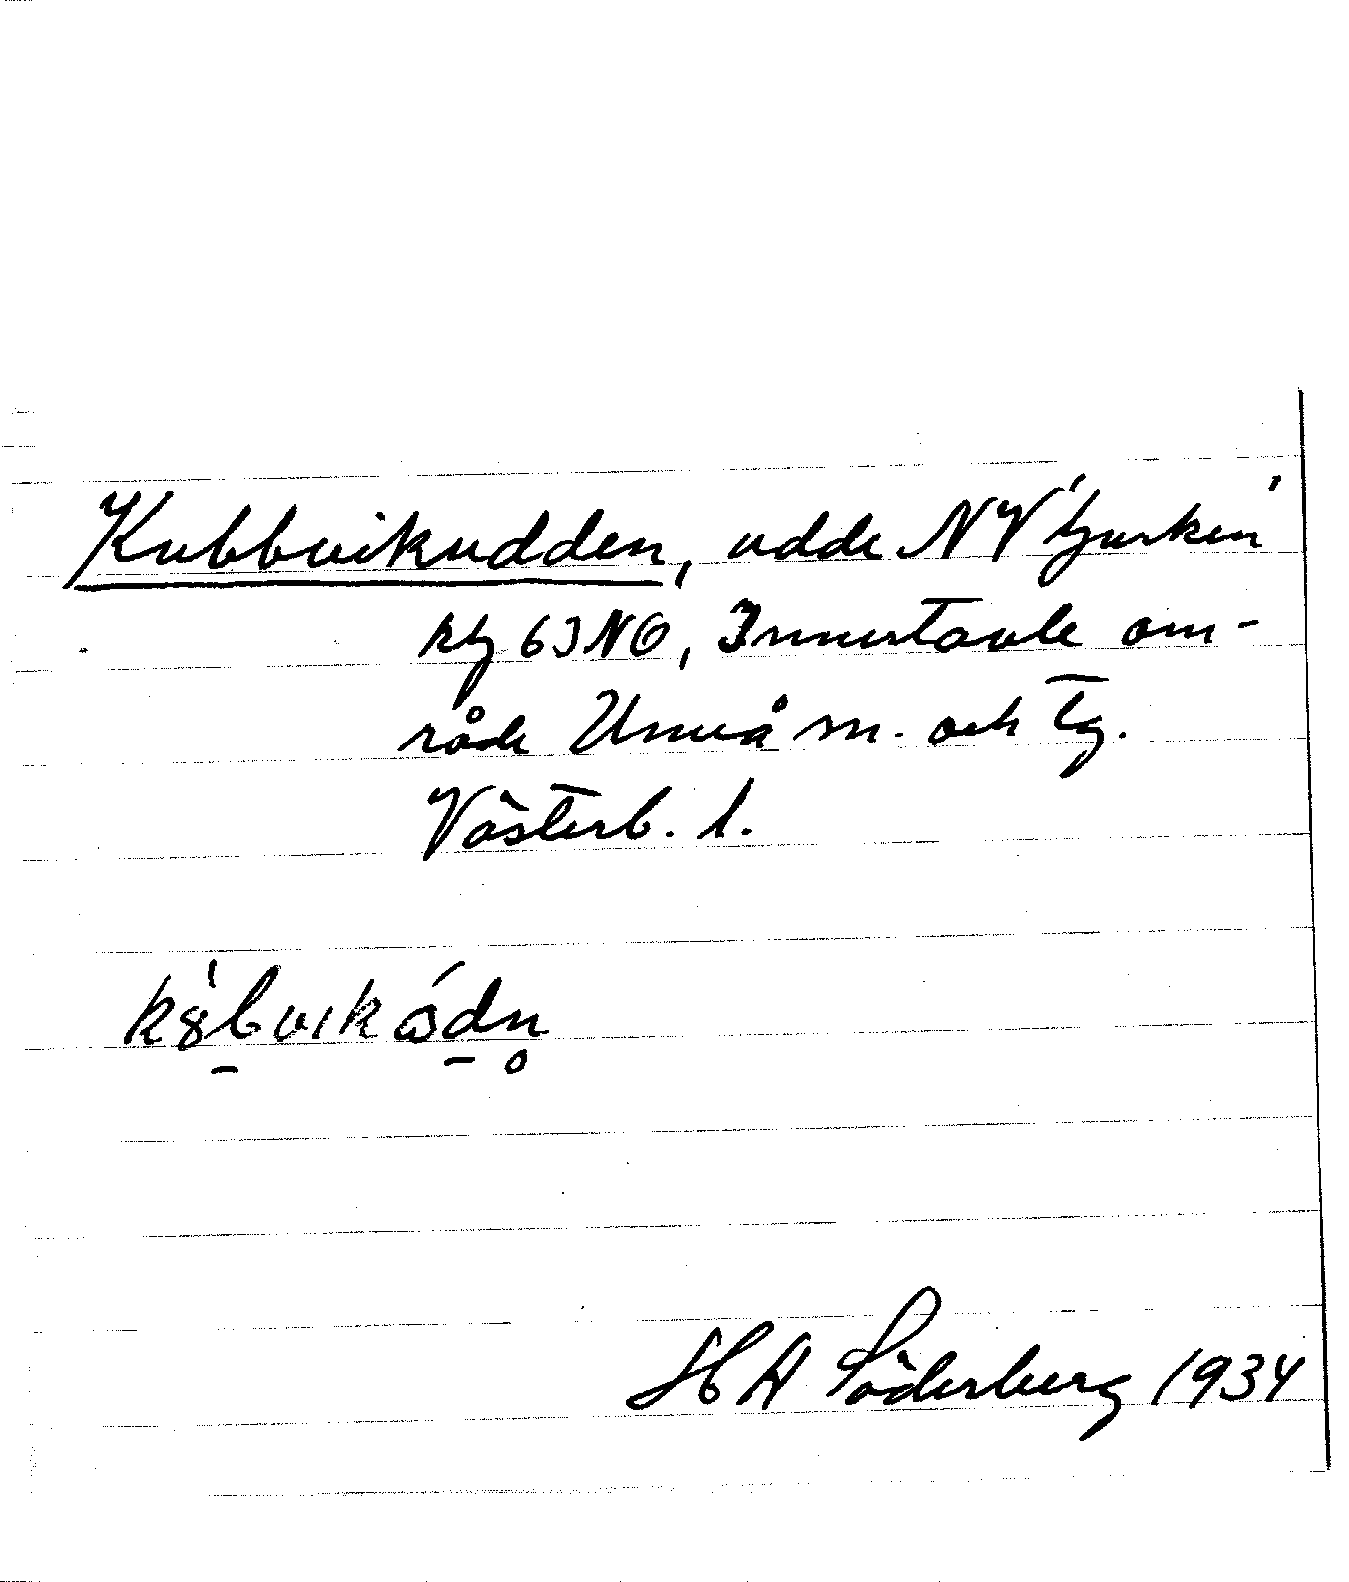 Kubbvikudden, udde NV 'tjärken'
kbl 63NO, Innertavle om-
råde Umeå sn. och tg.
Västerb. l.
k8́bvɪkǿdn̥
H A Söderberg 1934